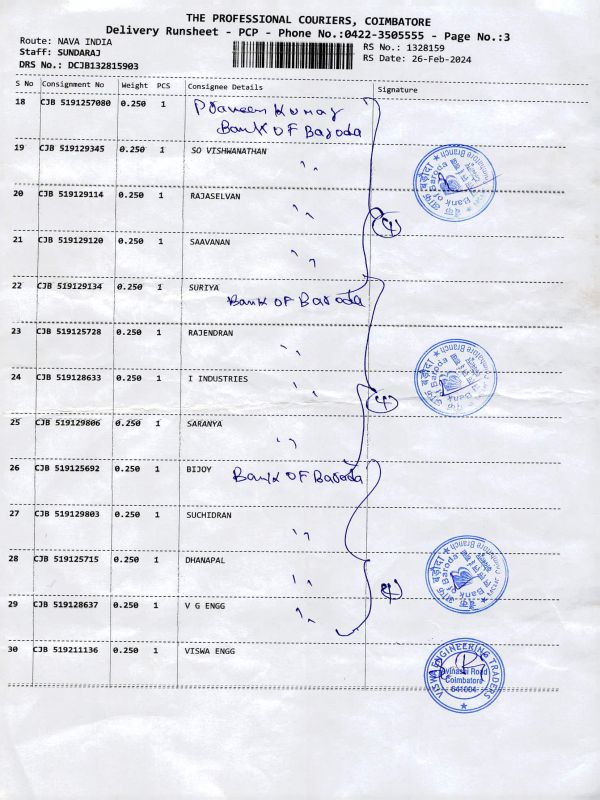 THE PROFESSIONAL COURIERS, COIMBATORE
Delivery Runsheet - PCP - Phone No.:0422-3505555 - Page No.:3
Route: NAVA INDIA
Staff: SUNDARAJ
DRS No.: DCJB132815903
RS No.: 1328159
RS Date: 26-Feb-2024
S No Consignment No Weight PCS Consignee Details Signature
18 CJB 5191257080 0.250 1 Praveen Kumar
Bank OF Baroda
19 CJB 519129345 0.250 1 SO VISHWANATHAN
" 
20 CJB 519129114 0.250 1 RAJASELVAN
"
(4)
21 CJB 519129120 0.250 1 SAAVANAN
"
22 CJB 519129134 0.250 1 SURIYA
Bank OF Baroda
23 CJB 519125728 0.250 1 RAJENDRAN
"
24 CJB 519128633 0.250 1 I INDUSTRIES
"
(4)
25 CJB 519129806 0.250 1 SARANYA
"
26 CJB 519125692 0.250 1 BIJOY
Bank OF Baroda
27 CJB 519129803 0.250 1 SUCHIDRAN
"
28 CJB 519125715 0.250 1 DHANAPAL
"
(4)
29 CJB 519128637 0.250 1 V G ENGG
"
30 CJB 519211136 0.250 1 VISWA ENGG
बैंक ऑफ़ बड़ौदा
Bank of Baroda
Coimbatore Branch
बैंक ऑफ़ बड़ौदा
Bank of Baroda
Coimbatore Branch
बैंक ऑफ़ बड़ौदा
Bank of Baroda
Coimbatore Branch
VISWA ENGINEEKING TRADERS
Avinashi Road
Coimbatore
641004